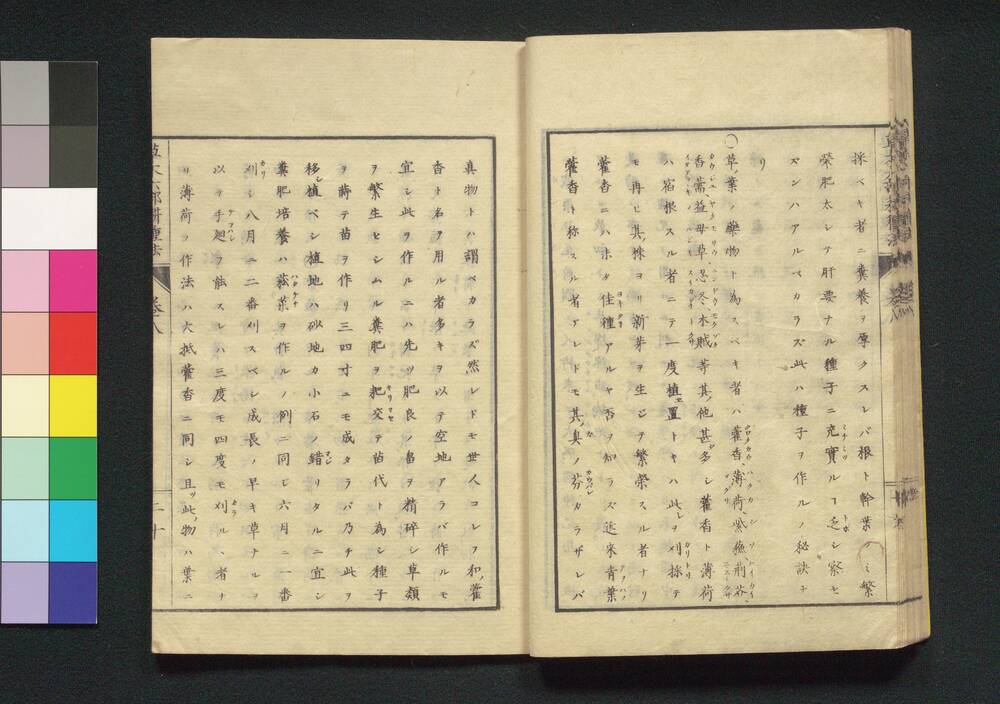 採ベキ者ニ糞養ヲ厚クスレバ根ト幹葉ノミ繁
榮肥太シテ肝要ナル種子ニ充實ルヿ乏シ察セ
ズンハアルベカラズ此ハ種子ヲ作ルノ秘訣ナ
リ
○草葉ノ藥物ト為スベキ者ハ藿香、薄荷、紫蘓、荊芥、
香薷益母草忍冬木賊等其他甚多シ藿香ト薄荷
ハ宿根スル者ニテ一度植置トキハ此ヲ刈採テ
モ再ビ其株ヨリ新芽ヲ生ジテ繁榮スル者ナリ
藿香ニハ未タ佳種アルヤ否ヲ知ラズ近來青葉
藿香ト称スル者アレドモ其臭ノ芬カラザレバ
真物トハ謂ベカラズ然レドモ世人コレヲ和藿
香ト名ヲ用ル者多キヲ以テ空地アラバ作ルモ
宜シ此ヲ作ルニハ先ツ肥良ノ畠ヲ精碎シ草類
ヲ繁生セシムル糞肥ヲ耙交テ苗代ト為シ種子
ヲ蒔テ苗ヲ作リ三四寸ニモ成タラバ乃チ此ヲ
移植ベシ植地ハ砂地カ小石ノ錯リタルニ宜シ
糞肥培養ハ菘菜ヲ作ルノ例ニ同シ六月ニ一番
刈シ八月ニ二番刈スベシ成長ノ早キ草ナルヲ
以テ手廻ヲ能スレハ三度モ四度モ刈ル、者ナ
リ薄荷ヲ作法ハ大抵藿香ニ同シ且此物ハ葉ニ
草木六部耕種法
卷八
二十